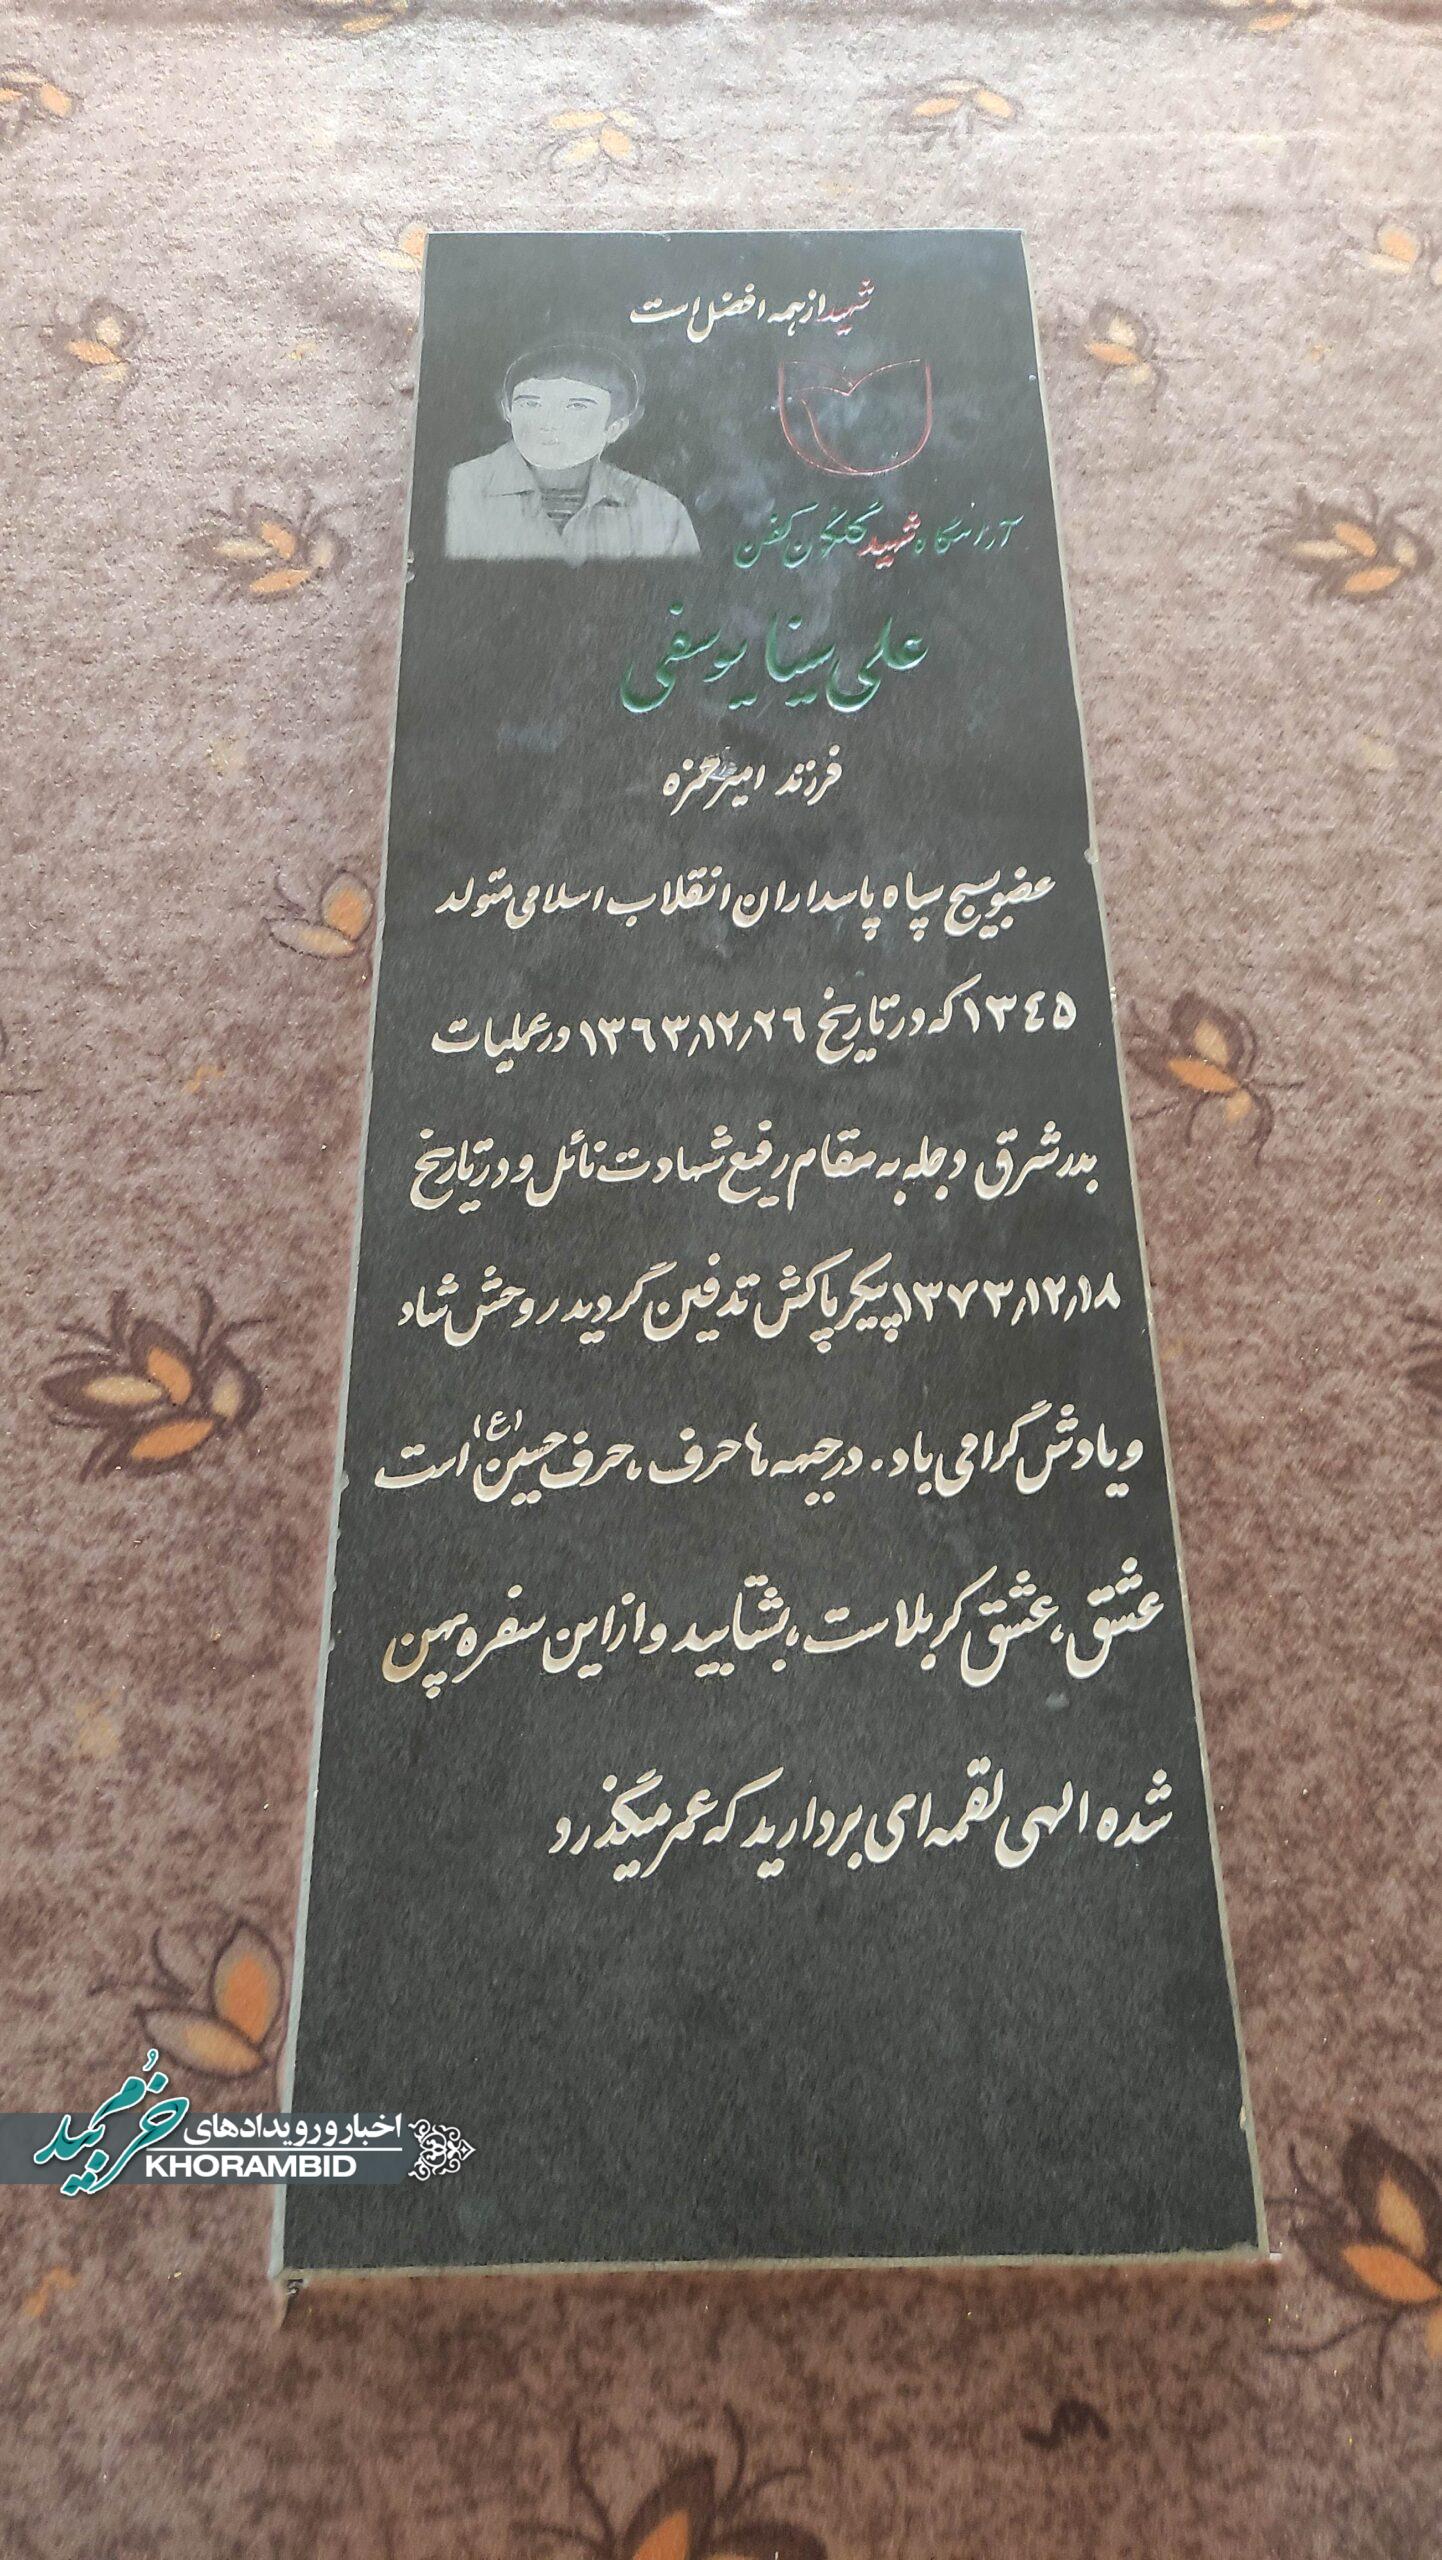 شهید از همه افضل است
آرامگاه شهید گلگون کفن
علی سینا یوسفی
فرزند امیرحمزه
عضو بسیج سپاه پاسداران انقلاب اسلامی متولد
۱۳٤۵ که در تاریخ ۱۳٦۳٫۱۲٫۲٦ در عملیات
بدر شرق دجله به مقام رفیع شهادت نائل و در تاریخ
۱۳۷۳٫۱۲٫۱۸ پیکر پاکش تدفین گردید روحش شاد
و یادش گرامی باد . در جبهه ها حرف ، حرف حسین (ع) است
عشق ، عشق کربلاست ، بشتابید و از این سفره پهن
شده الهی لقمه ای بردارید که عمر میگذرد
اخبار و رویدادهای خرمبید
KHORAMBID